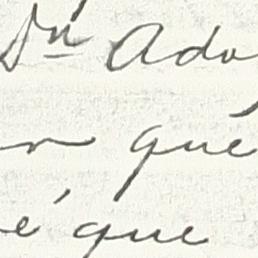 Dn Ado
n qué
é que